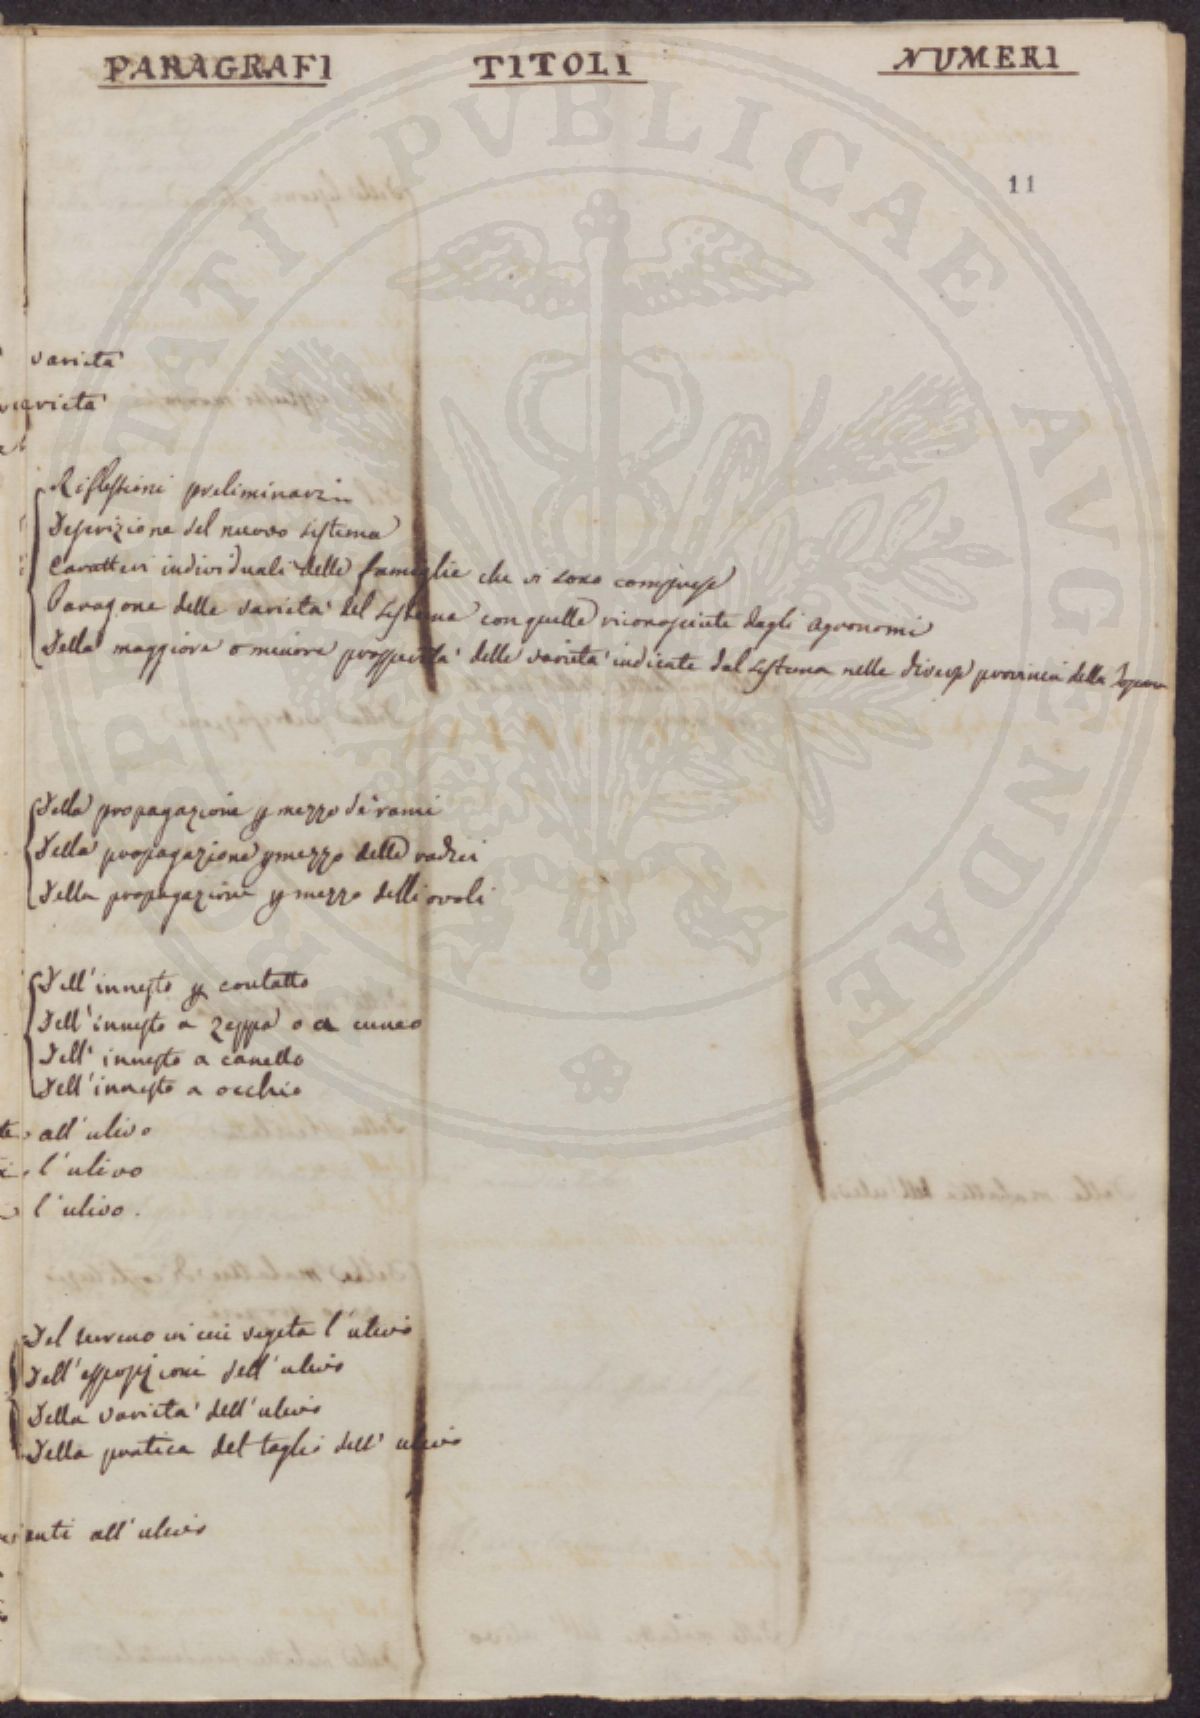 PARAGRAFI TITOLI NUMERI
11
varietà
varietà
Riflessioni preliminari
Descrizione del nuovo sistema
Caratteri individuali delle famiglie che vi sono comprese
Paragone delle varietà del sistema con quelle riconosciute dagli agronomi
Della maggiore o minore prosperità delle varietà indicate dal sistema nelle diverse provincie della
Della propagazione p mezzo de' rami
Della propagazione p mezzo delle radici
Della propagazione p mezzo delli ovoli
Dell' innesto p contatto
Dell' innesto a zeppa o a cuneo
Dell' innesto a canello
Dell' innesto a occhio
all' ulivo
l' ulivo
l' ulivo.
Del terreno in cui vegeta l' ulivo
Dell' esposizioni dell' ulivo
Della varietà dell' ulivo
Della pratica del taglio dell' ulivo
enti all' ulivo
Delle malattie dell' ulivo
REI PUBLICAE AVGENDAE